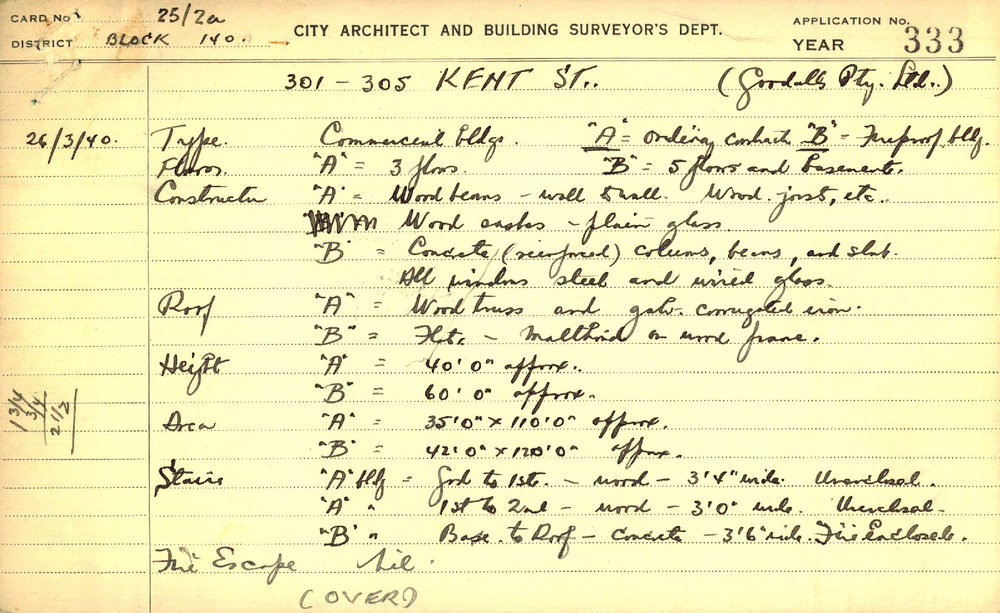 CARD No 25/2a
DISTRICT BLOCK 140.
CITY ARCHITECT AND BUILDING SURVEYOR'S DEPT.
APPLICATION No.
YEAR 333
301 - 305 KENT ST. (Goodalls Pty. Ltd.)
26/3/40. Type. Commercial bldgs. "A" = ordinary "B" = Fireproof bldg.
Floors. "A" = 3 floors. "B" = 5 floors and basement.
"A" = Wood beams - wall to wall. Wood joist, etc.
Wood sashes - plain glass
"B" = Concrete (reinforced) colums, beams, and slab.
All windows steel and wired glass.
Roof "A" = Wood truss and galv. corrugated iron.
"B" = Flat - Malthoid on wood frame.
Height "A" = 40'0" approx.
"B" = 60'0" approx.
Area "A" = 35'0" x 110'0" approx.
"B" = 42'0" x 120'0" approx.
1 3/4
3/4
2 1/2
Stairs "A" bldg = Grd to 1st. - wood - 3'4" wide. Unenclosed.
"A" " 1st to 2nd - wood - 3'0" wide. Unenclosed.
"B" " Base. to Roof - concrete - 3'6" wide. Fire Enclosed.
Fire Escape Nil.
(OVER)